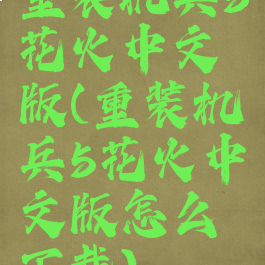 重装机兵5
花火中文
版(重装机
兵5花火中
文版怎么
下载)